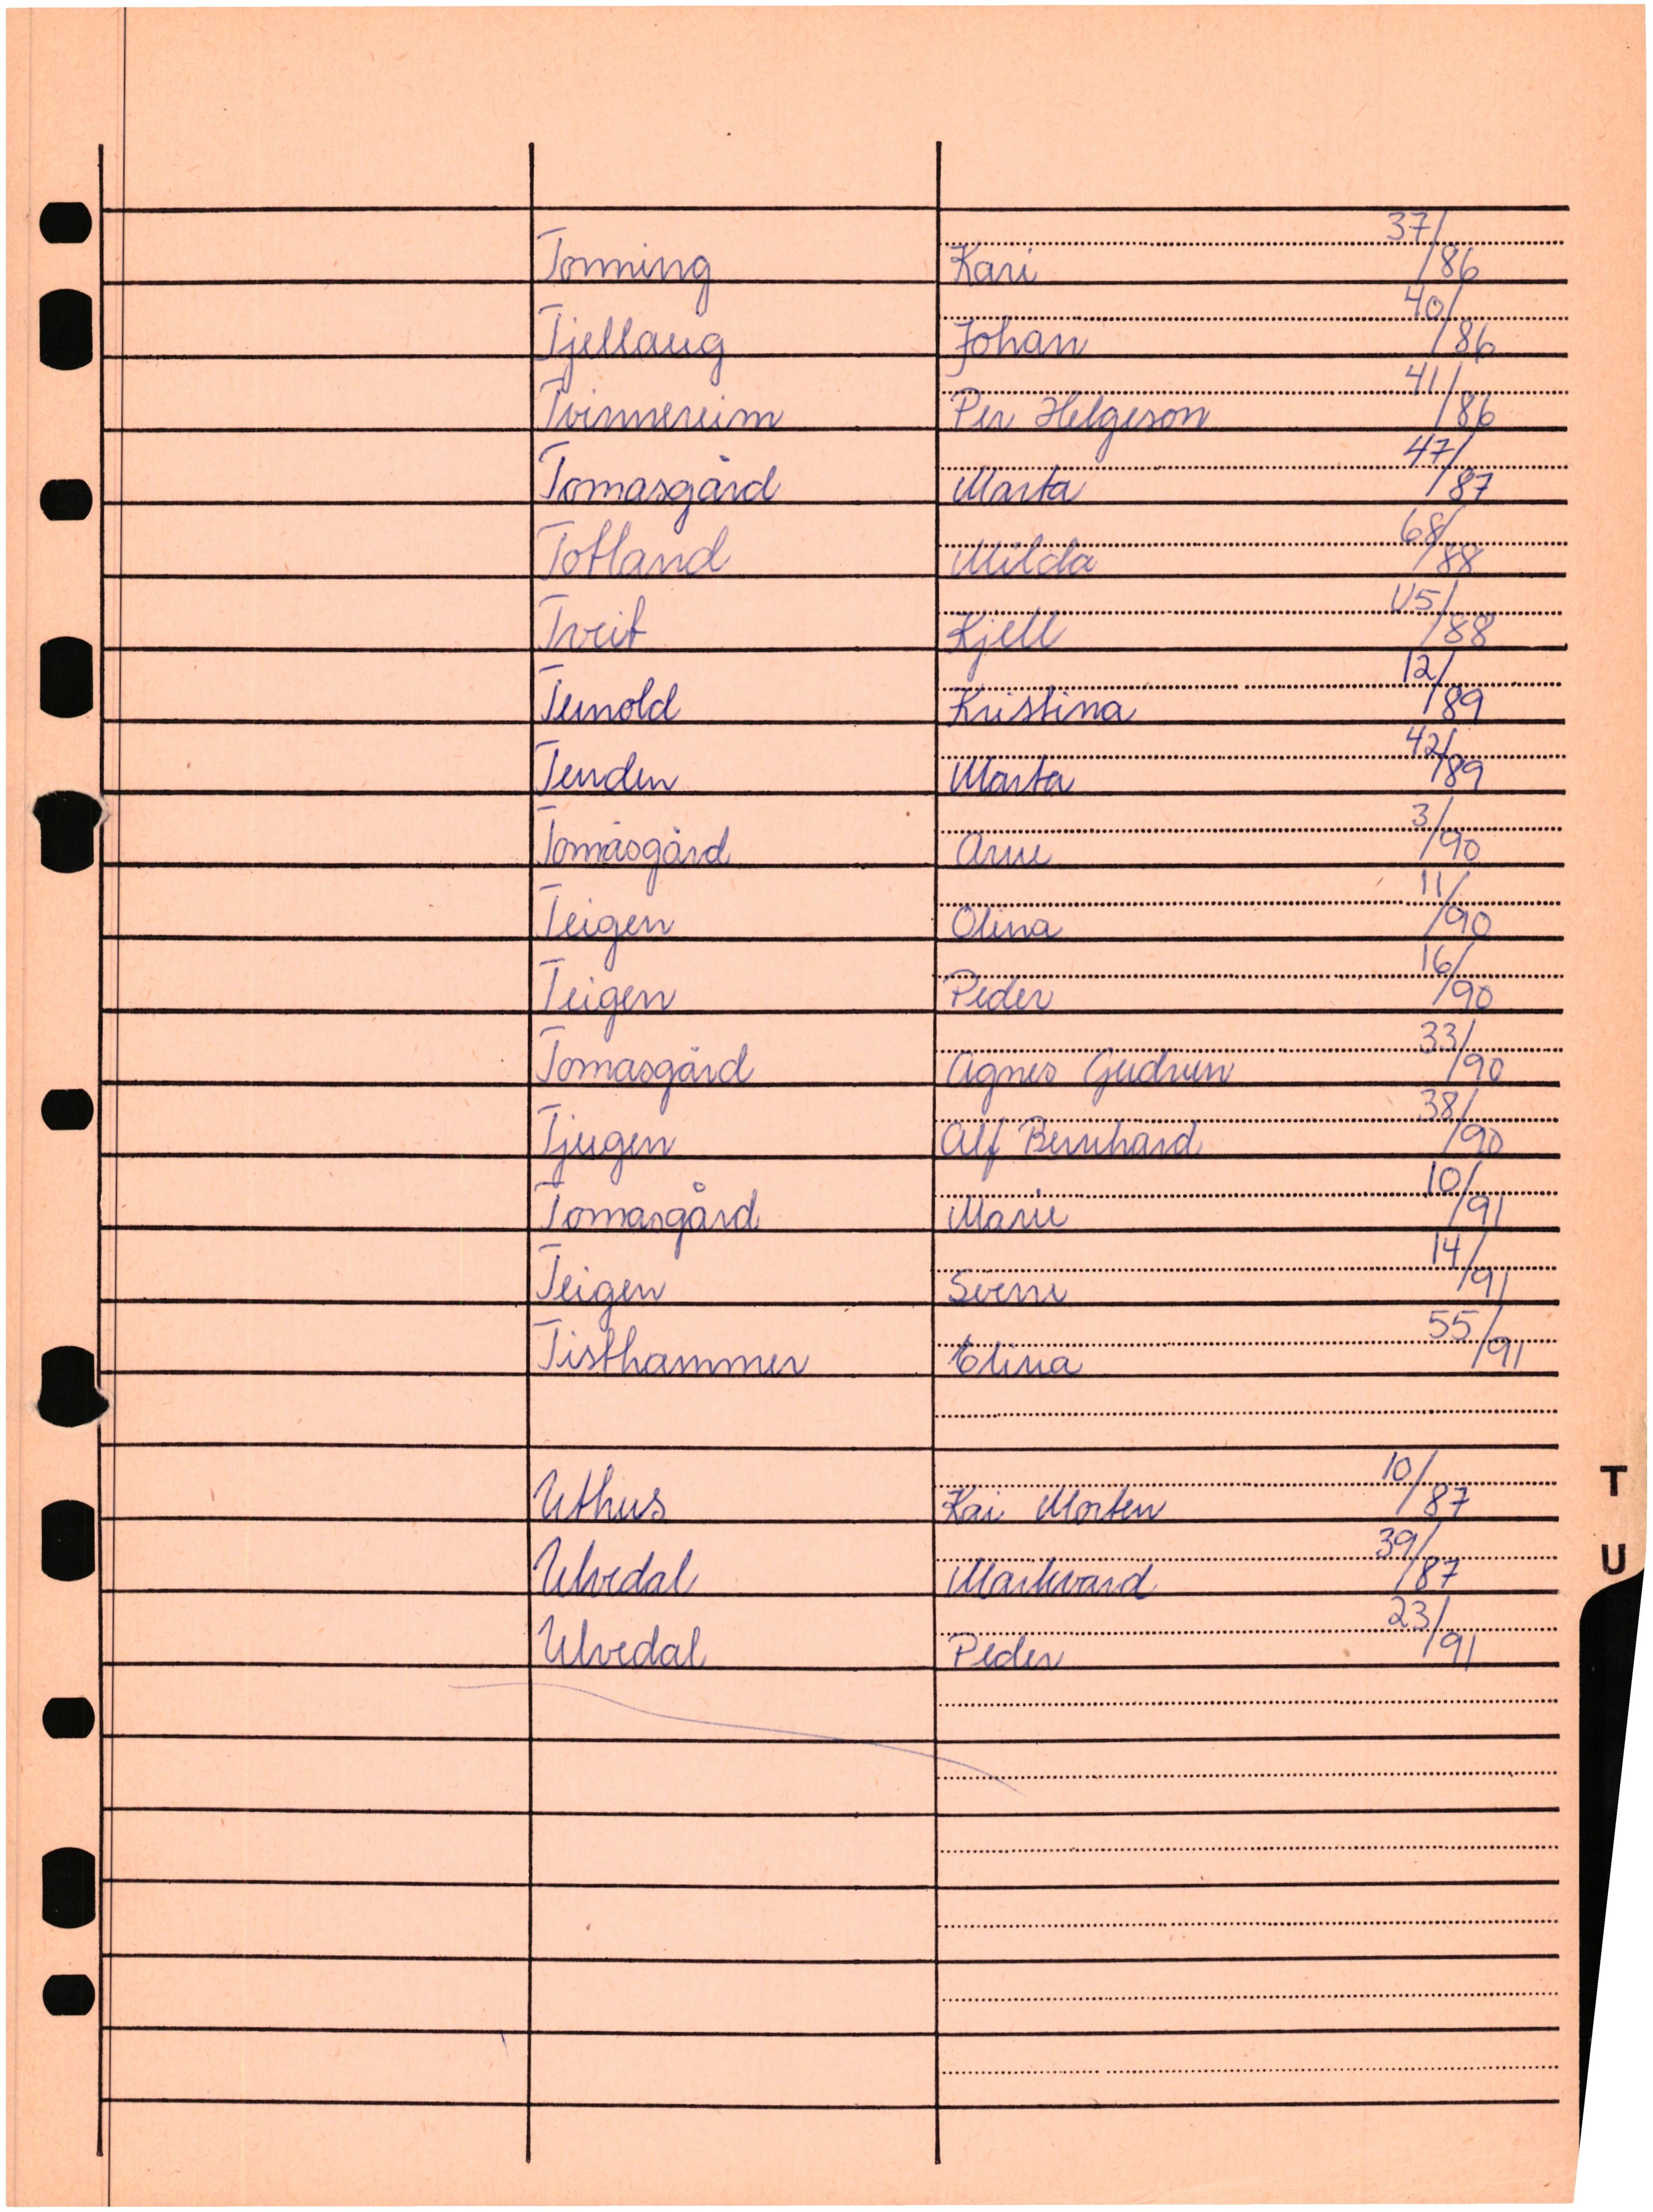 Tonning Kari 37/86
Tjellaug Johan 40/86
Tvinnereim Per Helgeson 41/86
Tomasgård Marta 47/87
Totland Milda 68/88
Tveit Kjell U5/88
Ternold Kristina 12/89
Tenden Marta 42/89
Tomasgård Arne 3/90
Teigen Olina 11/90
Teigen Peder 16/90
Tomasgård Agnes Gudrun 33/90
Tjugen Alf Bernhard 38/90
Tomasgård Marie 10/91
Teigen Sverre 14/91
Tisthammer Elina 55/91
Uthus Kai Morten 10/87
T
Ulvedal Markvard 39/87
U
Ulvedal Peder 23/91